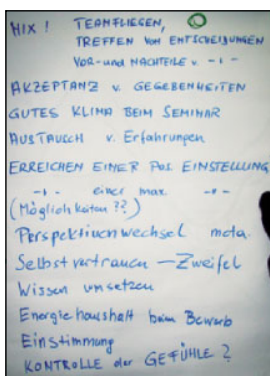 MIX ! TEAMFLIEGEN,
TREFFEN von ENTSCHEIDUNGEN
VOR- und NACHTEILE v. -"-
AKZEPTANZ v. GEGEBENHEITEN
GUTES KLIMA BEIM SEMINAR
AUSTAUSCH v. Erfahrungen
ERREICHEN EINER POS EINSTELLUNG
-"- einer max. -"-
(Möglichkeiten ??)
Perspektivenwechsel meta.
Selbstvertrauen — Zweifel
Wissen umsetzen
Energiehaushalt beim Bewerb
Einstimmung
KONTROLLE der GEFÜHLE ?